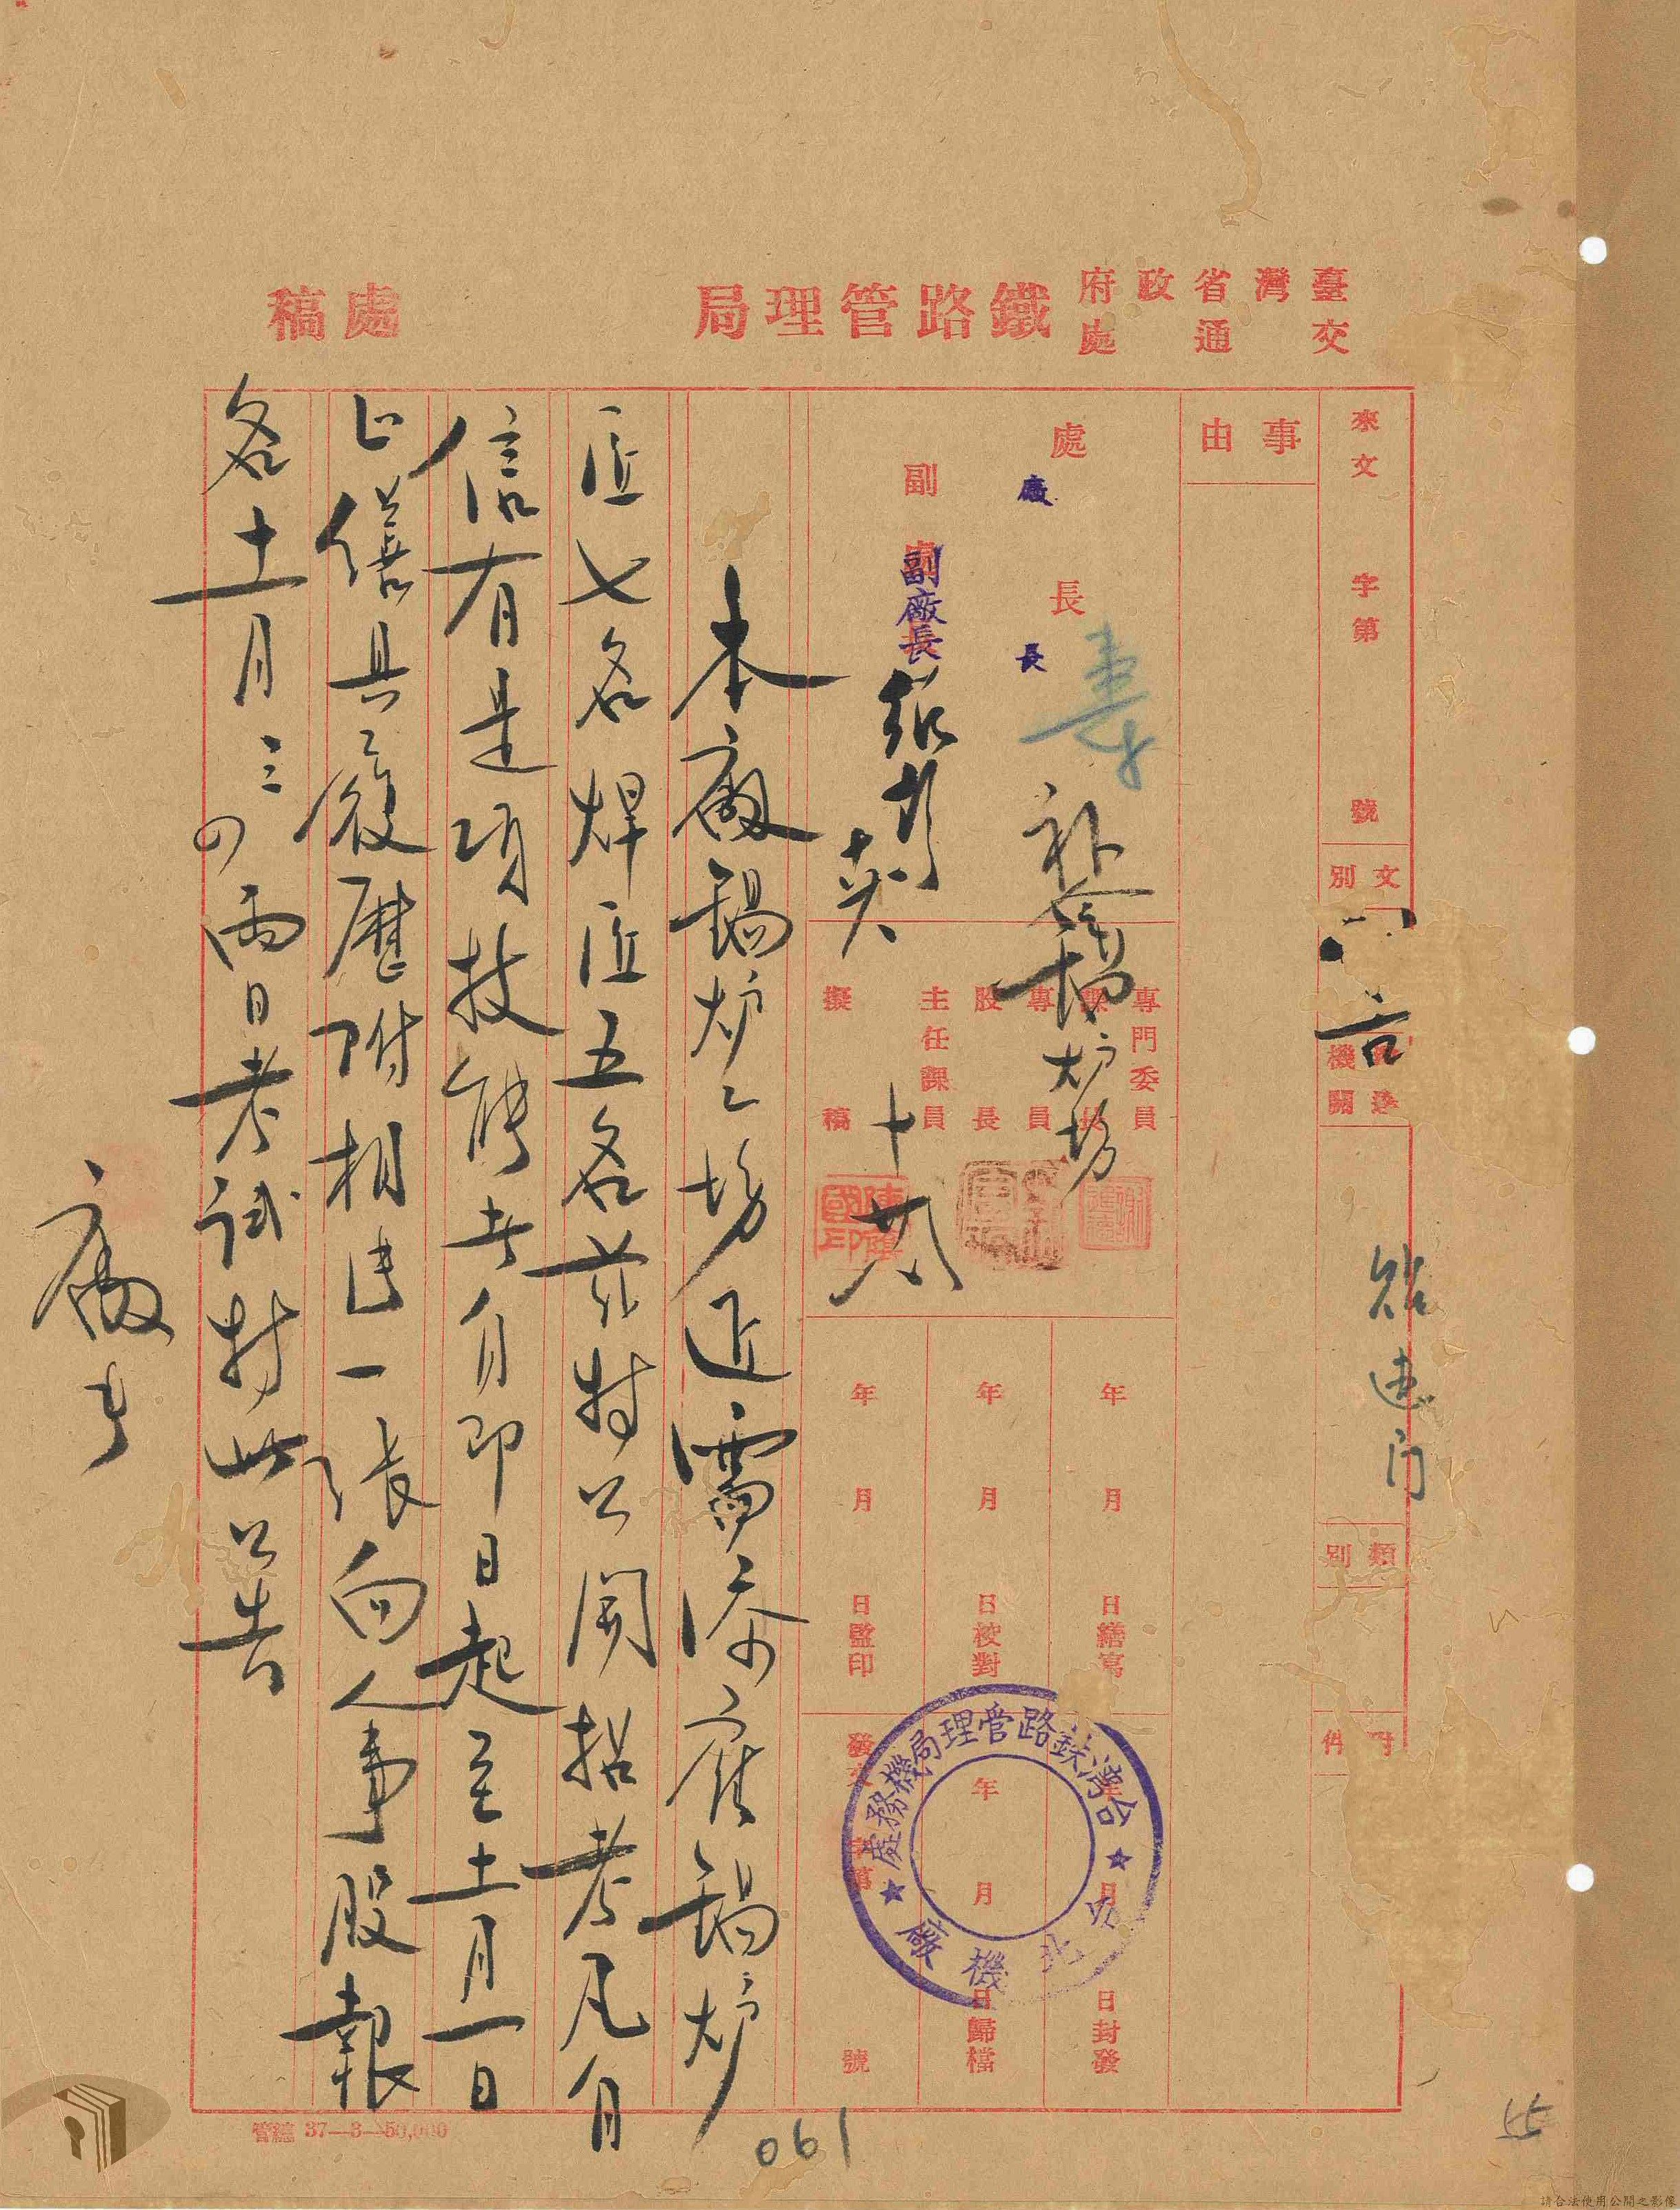 臺灣省政府
交通處
鐵路管理局
處稿
來文 字第 號
文別
機關
類別
附件
事由
處長
廠長
副處長
副廠長
專門委員
課長
專員
股長
主任課員
擬稿
年 月 日繕寫
年 月 日校對
年 月 日監印
年 月 日封發
年 月 日歸檔
發文 字第 號
公告
貼達門
補鍋炉坊
台灣鉄路管理局機務處
台北機廠
本廠鍋炉工場近需添雇鍋炉
匠七名焊匠五名茲特公開招考凡自
信有是項技能者自即日起至十一月一日
止繕具履歷附相片一張向人事股報
名十一月三四兩日考試特此公告
廠長
管總 37—3—50,000
061
55
請合法使用公開之影像